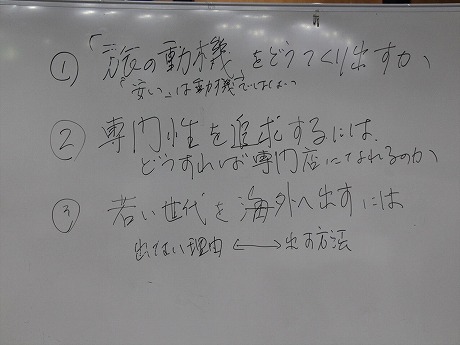 ① 「旅の動機」をどうつくり出すか
「安い」は動機ではない
② 専門性を追求するには
どうすれば専門店になれるのか
③ 若い世代を海外へ出すには
出ない理由 ←→ 出す方法